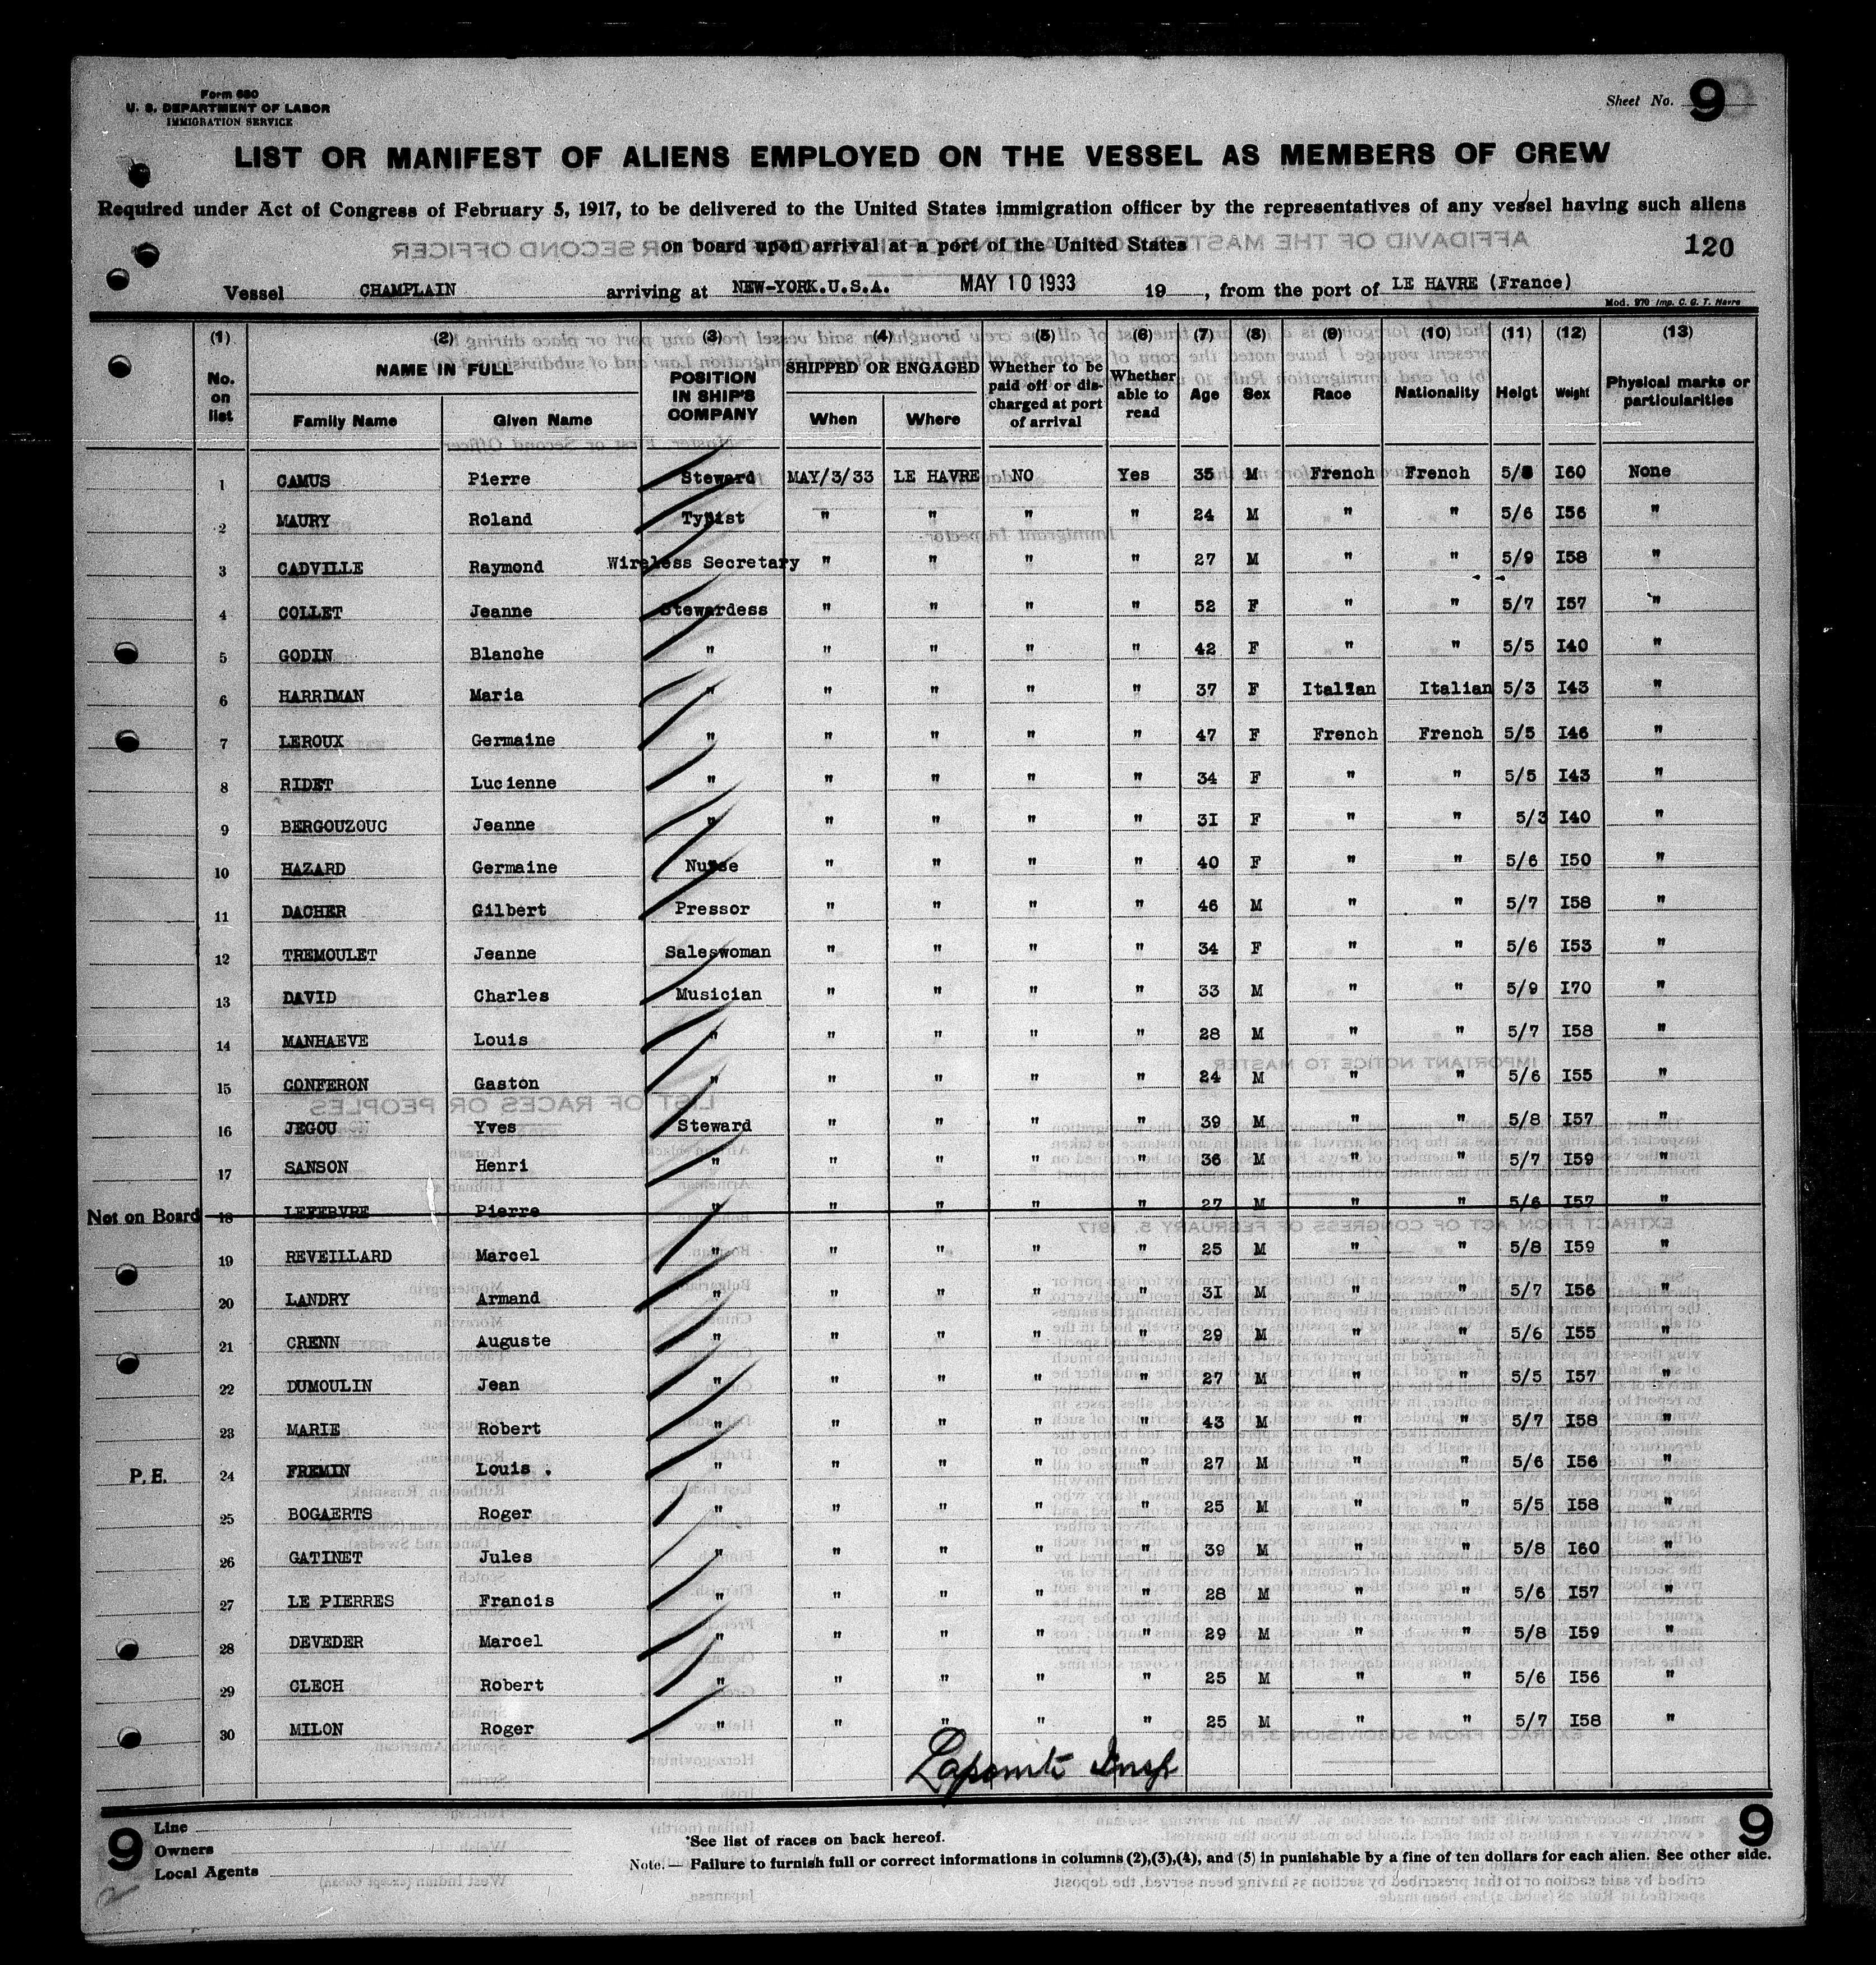 Form 680
U. S. DEPARTMENT OF LABOR
IMMIGRATION SERVICE
Sheet No. 9
LIST OR MANIFEST OF ALIENS EMPLOYED ON THE VESSEL AS MEMBERS OF CREW
Required under Act of Congress of February 5, 1917, to be delivered to the United States immigration officer by the representatives of any vessel having such aliens
on board upon arrival at a port of the United States
120
Vessel CHAMPLAIN arriving at NEW-YORK.U.S.A. MAY 10 1933 19 , from the port of LE HAVRE (France)
Mod. 970 Imp. C. G. T. Havre
(1) (2) (3) (4) (5) (6) (7) (8) (9) (10) (11) (12) (13)
No. on list NAME IN FULL Family Name Given Name POSITION IN SHIP'S COMPANY SHIPPED OR ENGAGED When Where Whether to be paid off or discharged at port of arrival Whether able to read Age Sex Race Nationality Heigt Weight Physical marks or particularities
1 CAMUS Pierre Steward MAY/3/33 LE HAVRE NO Yes 35 M French French 5/8 I60 None
2 MAURY Roland Typist " " " " 24 M " " 5/6 I56 "
3 CADVILLE Raymond Wireless Secretary " " " " 27 M " " 5/9 I58 "
4 COLLET Jeanne Stewardess " " " " 52 F " " 5/7 I57 "
5 GODIN Blanche " " " " " 42 F " " 5/5 I40 "
6 HARRIMAN Maria " " " " " 37 F Italian Italian 5/3 I43 "
7 LEROUX Germaine " " " " " 47 F French French 5/5 I46 "
8 RIDET Lucienne " " " " " 34 F " " 5/5 I43 "
9 BERGOUZOUC Jeanne " " " " " 3I F " " 5/3 I40 "
10 HAZARD Germaine Nurse " " " " 40 F " " 5/6 I50 "
11 DACHER Gilbert Pressor " " " " 46 M " " 5/7 I58 "
12 TREMOULET Jeanne Saleswoman " " " " 34 F " " 5/6 I53 "
13 DAVID Charles Musician " " " " 33 M " " 5/9 I70 "
14 MANHAEVE Louis " " " " " 28 M " " 5/7 I58 "
15 CONFERON Gaston " " " " " 24 M " " 5/6 I55 "
16 JEGOU Yves Steward " " " " 39 M " " 5/8 I57 "
17 SANSON Henri " " " " " 36 M " " 5/7 I59 "
Not on Board 18 LEFEBVRE Pierre " " " " " 27 M " " 5/6 I57 "
19 REVEILLARD Marcel " " " " " 25 M " " 5/8 I59 "
20 LANDRY Armand " " " " " 3I M " " 5/7 I56 "
21 CRENN Auguste " " " " " 29 M " " 5/6 I55 "
22 DUMOULIN Jean " " " " " 27 M " " 5/5 I57 "
23 MARIE Robert " " " " " 43 M " " 5/7 I58 "
P.E. 24 FREMIN Louis . " " " " " 27 M " " 5/6 I56 "
25 BOGAERTS Roger " " " " " 25 M " " 5/5 I58 "
26 GATINET Jules " " " " " 39 M " " 5/8 I60 "
27 LE PIERRES Francis " " " " " 28 M " " 5/6 I57 "
28 DEVEDER Marcel " " " " " 29 M " " 5/8 I59 "
29 CLECH Robert " " " " " 25 M " " 5/6 I56 "
30 MILON Roger " " " " " 25 M " " 5/7 I58 "
Insp
9 Line
Owners
Local Agents
*See list of races on back hereof.
Note.— Failure to furnish full or correct informations in columns (2),(3),(4), and (5) in punishable by a fine of ten dollars for each alien. See other side.
9